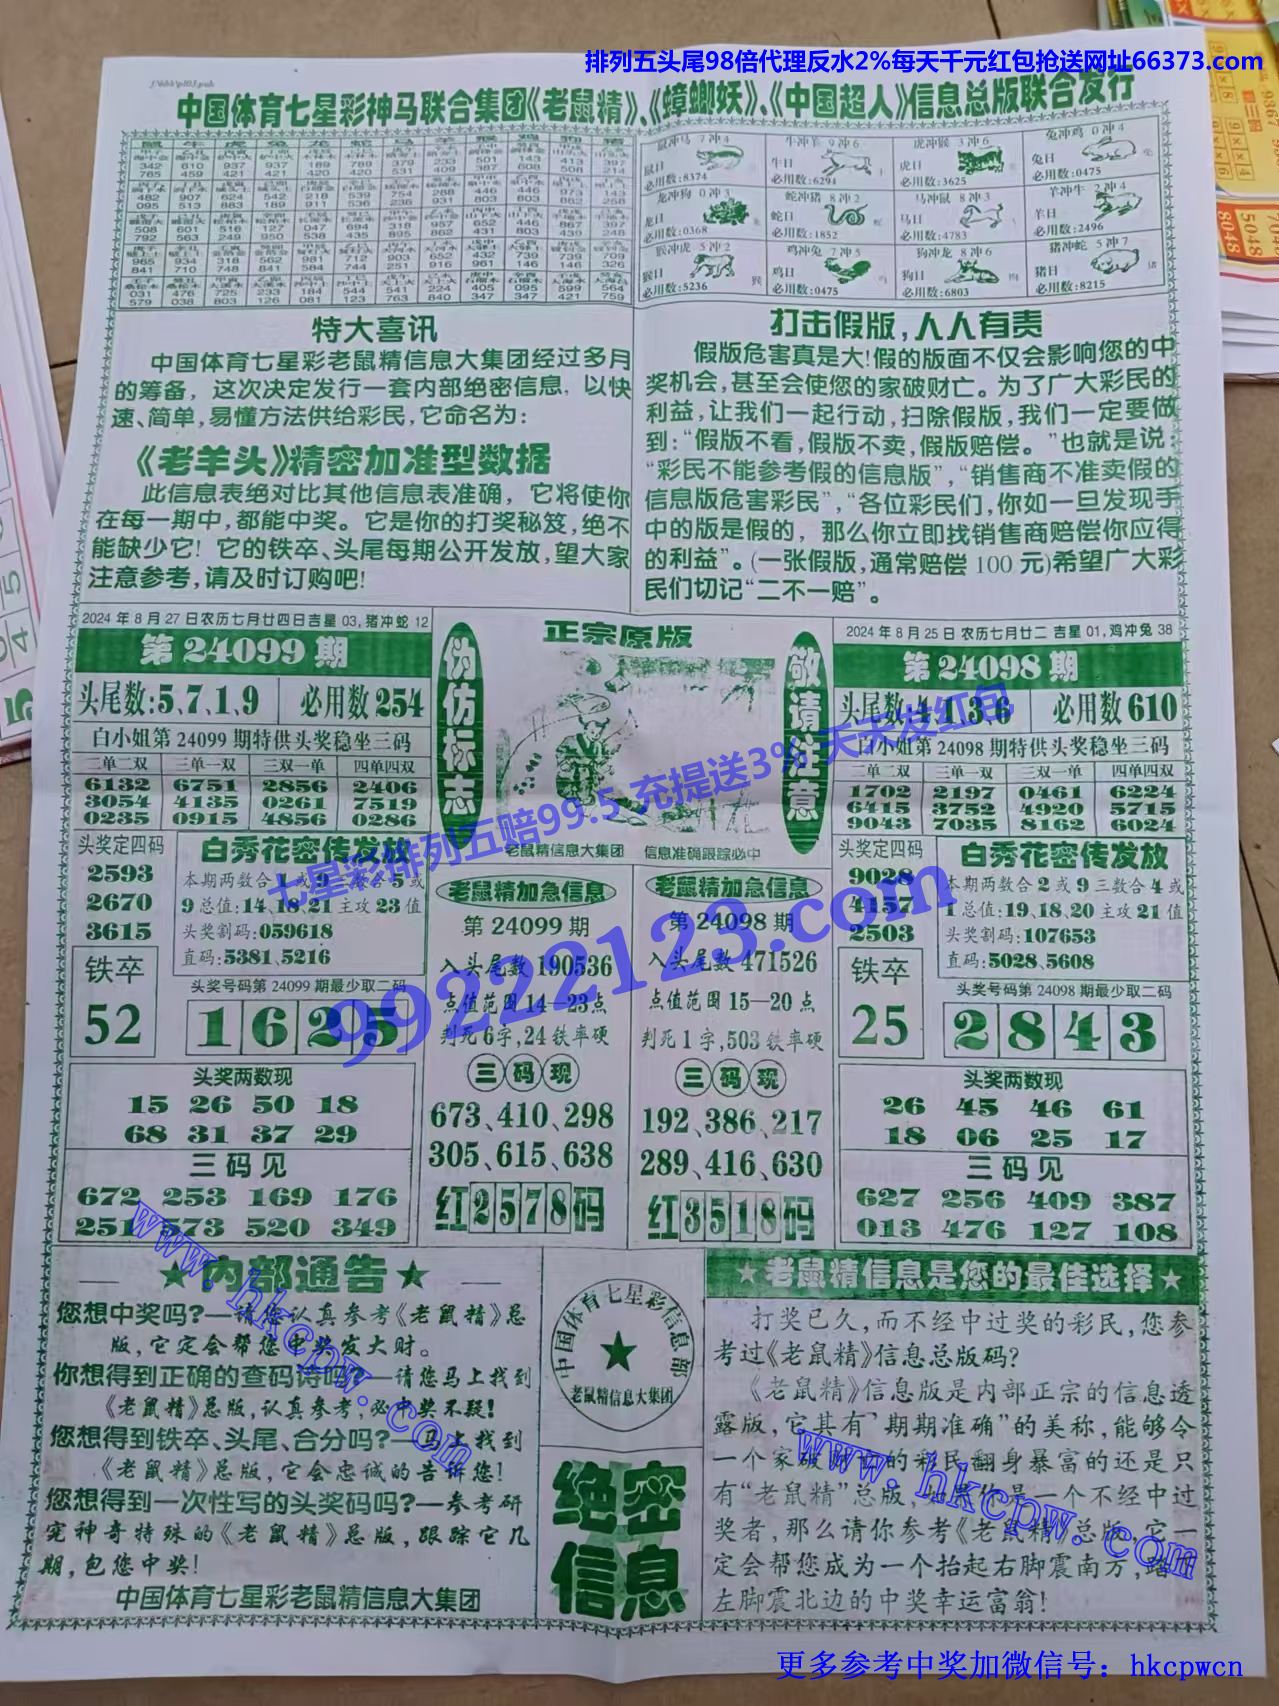 排列五头尾98倍代理反水2%每天千元红包抢送网址66373.com
中国体育七星彩神马联合集团《老鼠精》、《蟑螂妖》、《中国超人》信息总版联合发行
鼠冲马 7冲4
鼠日
必用数:8374
牛冲羊 9冲6
牛日
必用数:6294
虎冲猴 3冲6
虎日
必用数:3625
兔冲鸡 0冲4
兔日
必用数:0475
龙冲狗 0冲3
龙日
必用数:0368
蛇冲猪 8冲2
蛇日
必用数:1852
马冲鼠 8冲3
马日
必用数:4783
羊冲牛 2冲4
羊日
必用数:2496
猴冲虎 5冲2
猴日
必用数:5236
鸡冲兔 7冲5
鸡日
必用数:0475
狗冲龙 8冲6
狗日
必用数:6803
猪冲蛇 5冲7
猪日
必用数:8215
特大喜讯
中国体育七星彩老鼠精信息大集团经过多月
的筹备，这次决定发行一套内部绝密信息，以快
速、简单，易懂方法供给彩民，它命名为：
《老羊头》精密加准型数据
此信息表绝对比其他信息表准确，它将使你
在每一期中，都能中奖。它是你的打奖秘笈，绝不
能缺少它！它的铁卒、头尾每期公开发放，望大家
注意参考，请及时订购吧！
打击假版，人人有责
假版危害真是大！假的版面不仅会影响您的中
奖机会，甚至会使您的家破财亡。为了广大彩民的
利益，让我们一起行动，扫除假版，我们一定要做
到：“假版不看，假版不卖，假版赔偿。”也就是说：
“彩民不能参考假的信息版”，“销售商不准卖假的
信息版危害彩民”，“各位彩民们，你如一旦发现手
中的版是假的，那么你立即找销售商赔偿你应得
的利益”。(一张假版，通常赔偿100元)希望广大彩
民们切记“二不一赔”。
2024年8月27日农历七月廿四日吉星03,猪冲蛇12
第24099期
头尾数:5、7、1、9 必用数254
白小姐第24099期特供头奖稳坐三码
二单二双 三单一双 三双一单 四单四双
6132 6751 2856 2406
3054 4135 0261 7519
0235 0915 4856 0286
头奖定四码
2593
2670
3615
白秀花密传发放
本期两数合1或9三数合5或
9总值:14、18、21主攻23值
头奖割码:059618
直码:5381、5216
铁卒
52
头奖号码第24099期最少取二码
1 6 2 5
头奖两数现
15 26 50 18
68 31 37 29
三码见
672 253 169 176
251 773 520 349
伪仿标志
正宗原版
敬请注意
老鼠精信息大集团 信息准确跟踪必中
七星彩排列五赔99.5 充提送3% 天天发红包
99222123.com
老鼠精加急信息
第24099期
入头尾数190536
点值范围14—23点
判死6字,24铁率硬
三码现
673、410、298
305、615、638
红2578码
老鼠精加急信息
第24098期
入头尾数471526
点值范围15—20点
判死1字,503铁率硬
三码现
192、386、217
289、416、630
红3518码
2024年8月25日农历七月廿二 吉星01,鸡冲兔38
第24098期
头尾数:4、1、3、6 必用数610
白小姐第24098期特供头奖稳坐三码
二单二双 三单一双 三双一单 四单四双
1702 2197 0461 6224
6415 3752 4920 5715
9043 7035 8162 6024
头奖定四码
9028
4157
2503
白秀花密传发放
本期两数合2或9三数合4或
1总值:19、18、20主攻21值
头奖割码:107653
直码:5028、5608
铁卒
25
头奖号码第24098期最少取二码
2 8 4 3
头奖两数现
26 45 46 61
18 06 25 17
三码见
627 256 409 387
013 476 127 108
★内部通告★
您想中奖吗？—请您认真参考《老鼠精》总
版，它定会帮您中奖发大财。
你想得到正确的查码诗吗？—请您马上找到
《老鼠精》总版，认真参考，必中奖不疑！
您想得到铁卒、头尾、合分吗？—马上找到
《老鼠精》总版，它会忠诚的告诉您！
您想得到一次性写的头奖码吗？—参考研
究神奇特殊的《老鼠精》总版，跟踪它几
期，包您中奖！
中国体育七星彩老鼠精信息大集团
www.hkcpw.com
中国体育七星彩信息部
老鼠精信息大集团
绝密
信息
★老鼠精信息是您的最佳选择★
打奖已久，而不经中过奖的彩民，您参
考过《老鼠精》信息总版码？
《老鼠精》信息版是内部正宗的信息透
露版，它其有“期期准确”的美称，能够令
一个家破财亡的彩民翻身暴富的还是只
有“老鼠精”总版，如果你是一个不经中过
奖者，那么请你参考《老鼠精》总版，它一
定会帮您成为一个抬起右脚震南方，踏
左脚震北边的中奖幸运富翁！
www.hkcpw.com
更多参考中奖加微信号：hkcpwcn